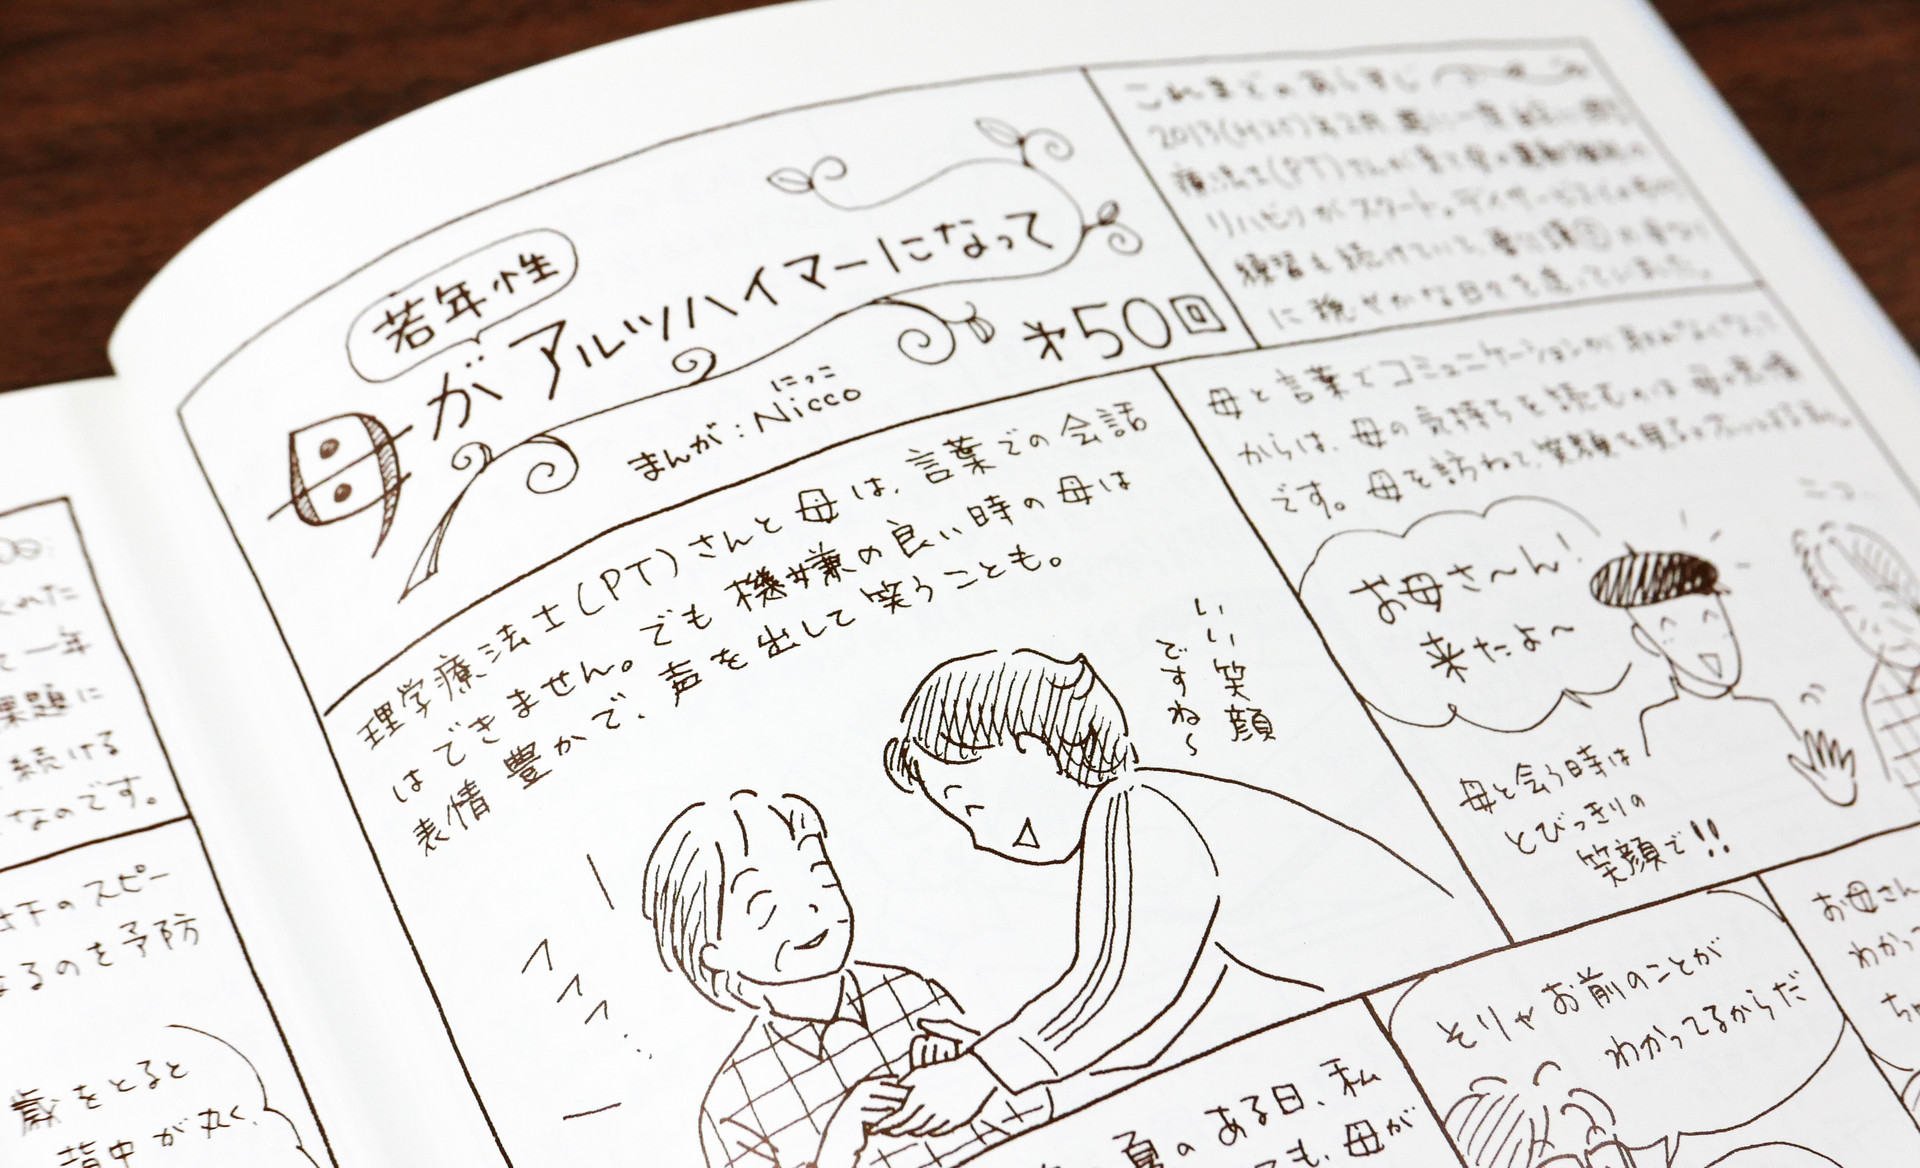 若年性
母がアルツハイマーになって
㐧50回
にっこ
まんが：Nicco
これまでのあらすじ
療法士(PT)さんが
リハビリがスタート。デイサービス
練習も続けていて、
に穏やかな日々を送っていました。
理学療法士(PT)さんと母は、言葉での会話
はできません。でも機嫌の良い時の母は
表情豊かで、声を出して笑うことも。
いい笑顔
ですね〜
フフフ…
母と言葉でコミュニケーションが
からは、母の気持ちを読むのは母の表情
です。母を訪ねて、笑顔を見ると
ニコ
お母さ〜ん！
来たよ〜
母と会う時は
とびっきりの
笑顔で!!
夏のある日、私
ても、母が
そりゃお前のことが
わかってるからだ
お母さん
わかって
ち
れた
て一年
課題に
続ける
なのです。
下のスピー
なるのを予防
歳をとると
背中が丸く、